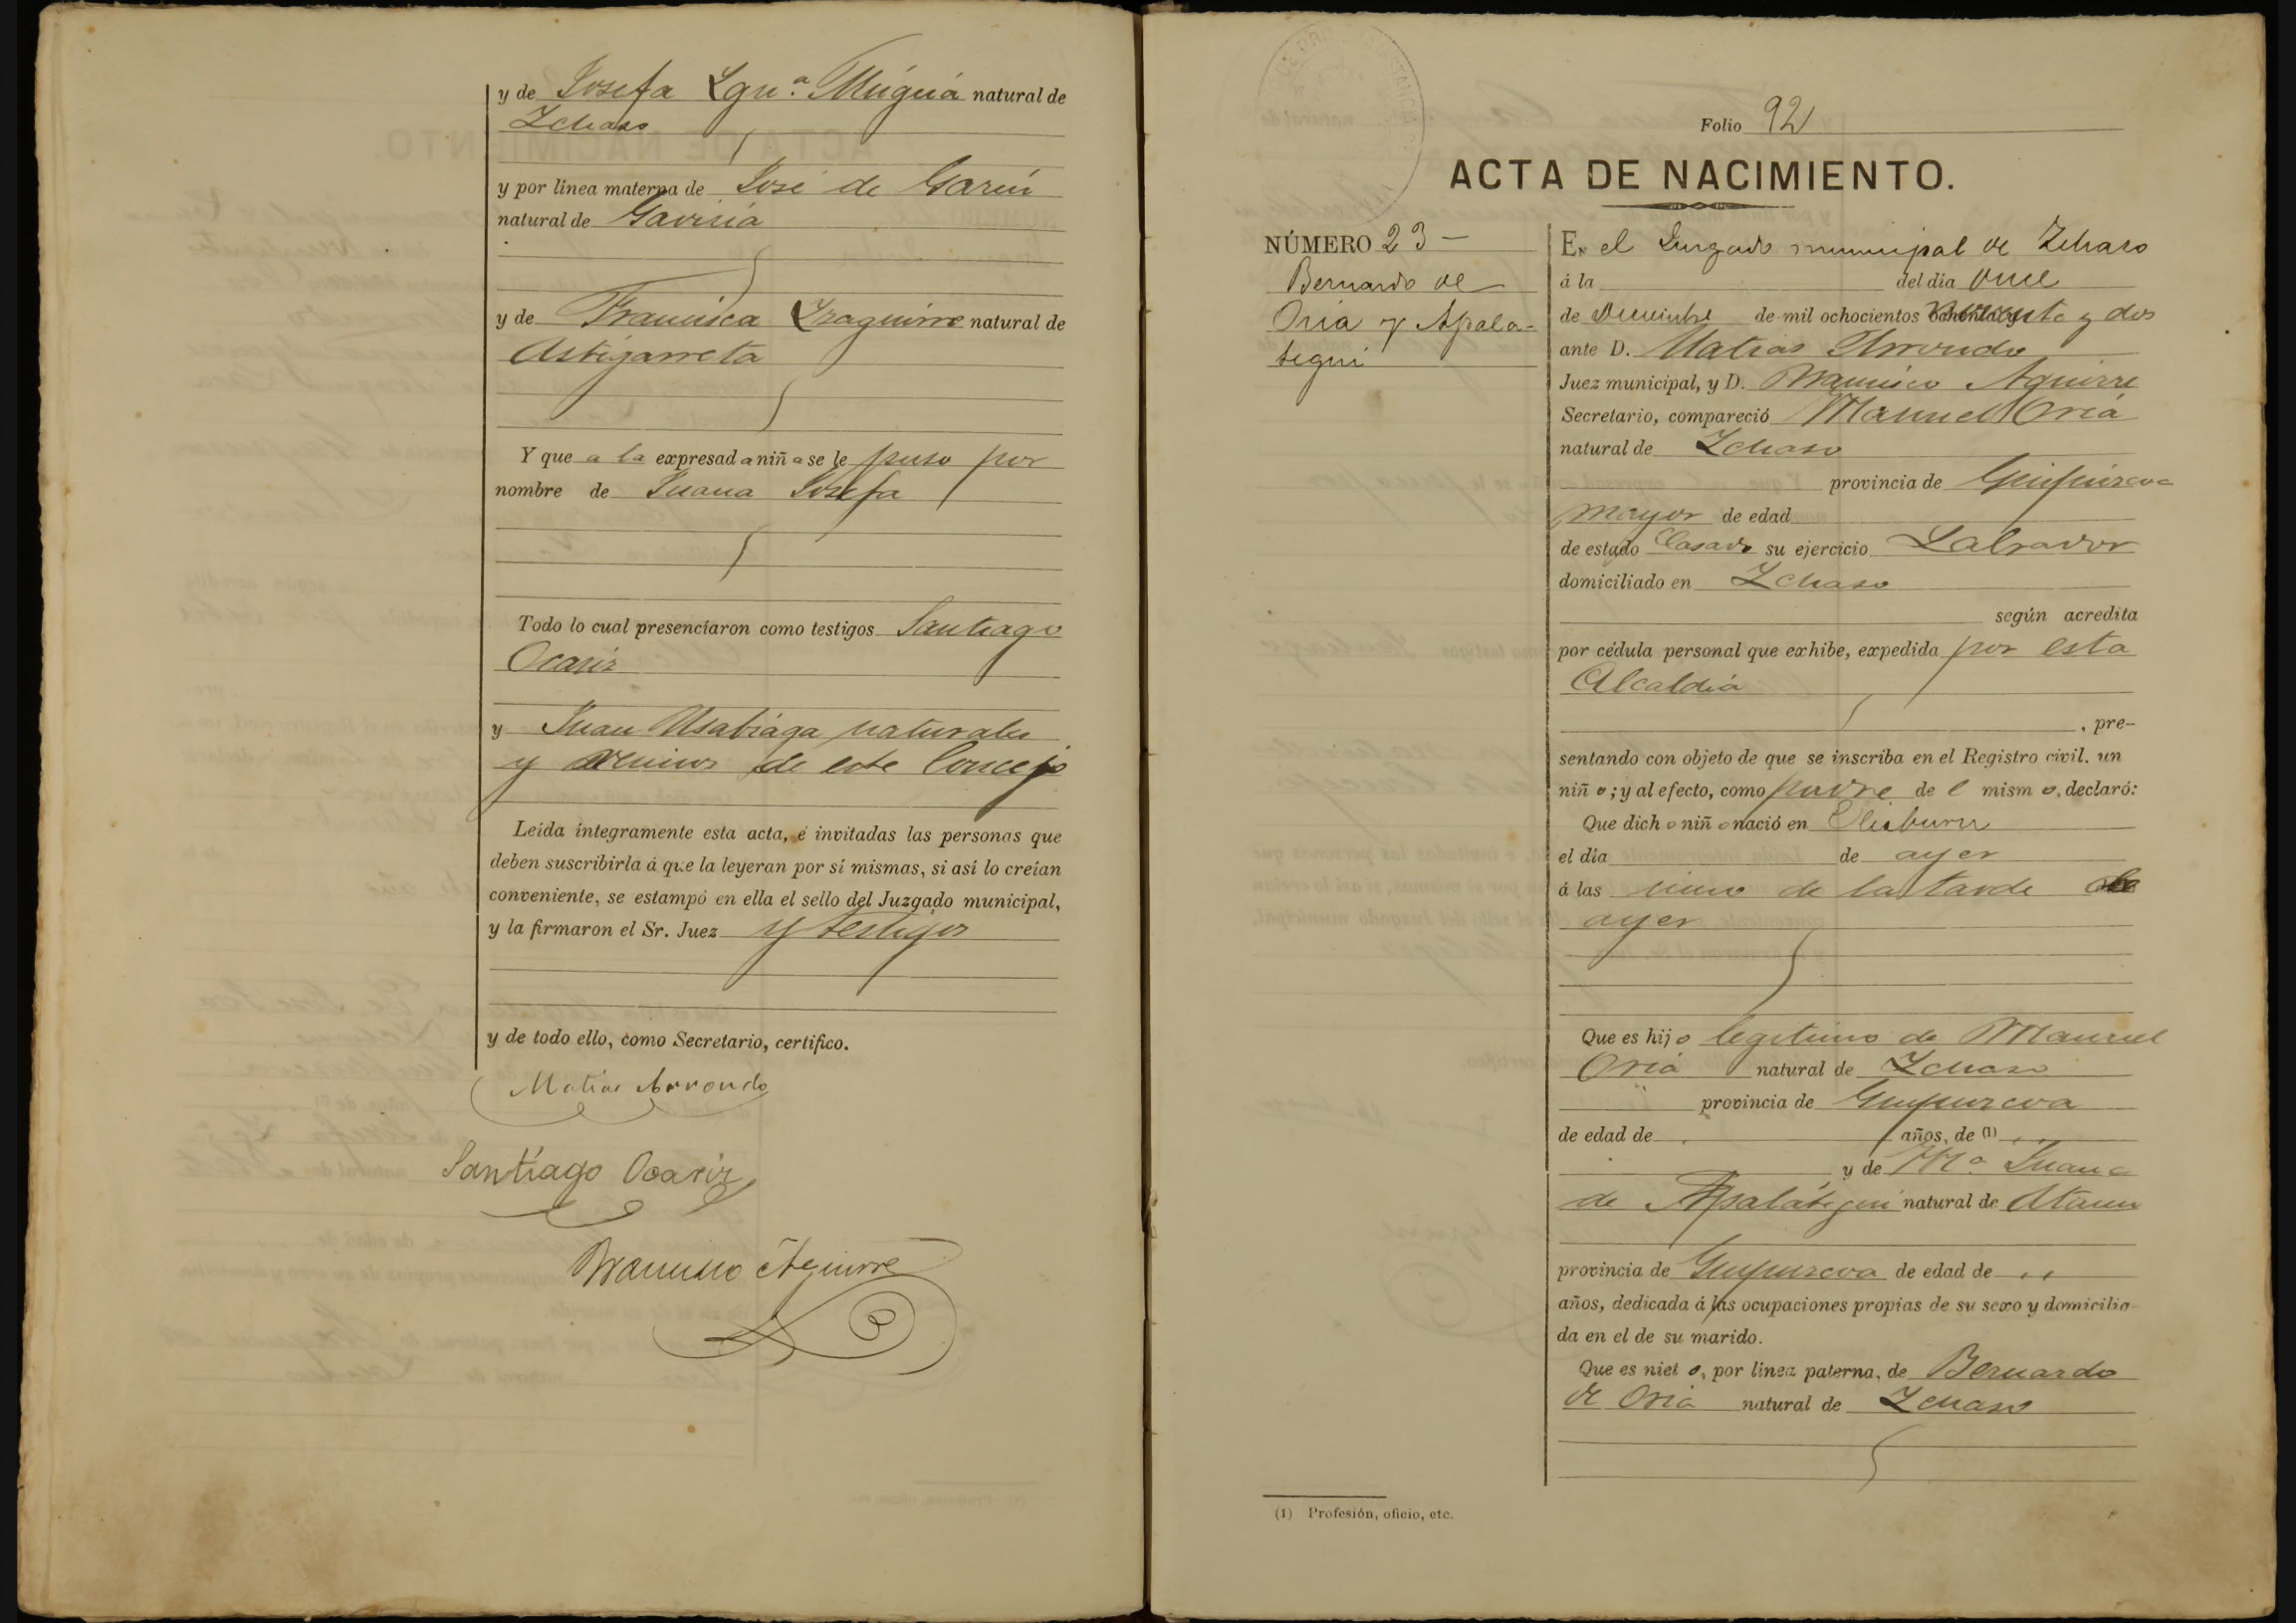 y de Josefa Ign.ª Múgica natural de
Ichaso
y por línea materna de José de Garin
natural de Gaviria
y de Francisca Izaguirre natural de
Astigarreta
Y que a la expresad a niñ a se le puso por
nombre de Juana Josefa
Todo lo cual presenciaron como testigos Santiago
Ocariz
y Juan Usabiaga naturales
y vecinos de este Concejo
Leída íntegramente esta acta, é invitadas las personas que
deben suscribirla á que la leyeran por sí mismas, si así lo creían
conveniente, se estampó en ella el sello del Juzgado municipal,
y la firmaron el Sr. Juez y testigos
y de todo ello, como Secretario, certifico.
Matias Arrondo
Santiago Ocariz
Francisco Aguirre
Folio 92
ACTA DE NACIMIENTO.
NÚMERO 23 —
Bernardo de
Oria y Apala-
tegui
En el Juzgado municipal de Ichaso
á la del día once
de Diciembre de mil ochocientos noventa y dos
ante D. Matias Arrondo
Juez municipal, y D. Francisco Aguirre
Secretario, compareció Manuel Oria
natural de Ichaso
provincia de Guipúzcoa
mayor de edad
de estado Casado su ejercicio Labrador
domiciliado en Ichaso
según acredita
por cédula personal que exhibe, expedida por esta
Alcaldia
, pre-
sentando con objeto de que se inscriba en el Registro civil. un
niñ o; y al efecto, como padre de l mism o, declaró:
Que dich o niñ o nació en
el día de ayer
á las cinco de la tarde de
ayer
Que es hij o legitimo de Manuel
Oria natural de Ichaso
provincia de Guipuzcoa
de edad de años, de (1)
y de Mª Juana
de Apalategui natural de Ataun
provincia de Guipuzcoa de edad de
años, dedicada á las ocupaciones propias de su sexo y domicilia-
da en el de su marido.
Que es niet o, por línea paterna, de Bernardo
de Oria natural de Ichaso
(1) Profesión, oficio, etc.